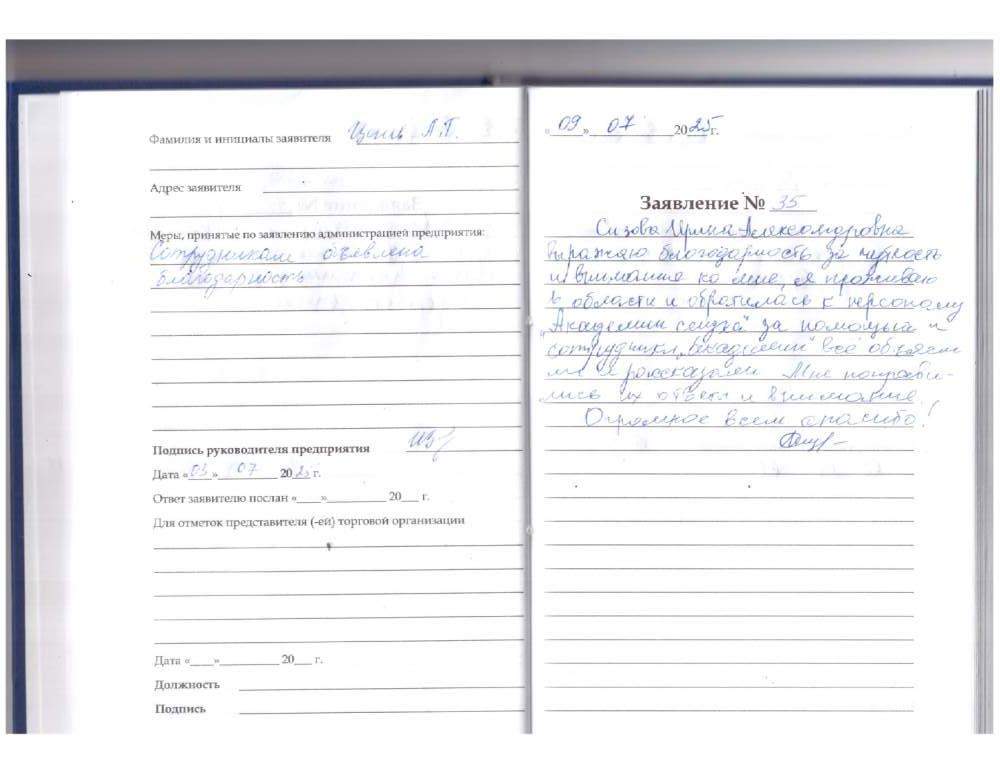 Фамилия и инициалы заявителя А.П.
Адрес заявителя
Меры, принятые по заявлению администрацией предприятия:
Сотрудникам объявлена
благодарность
Подпись руководителя предприятия
Дата «03» 07 2025 г.
Ответ заявителю послан «___»__________ 20___ г.
Для отметок представителя (-ей) торговой организации
Дата «___»__________ 20___ г.
Должность
Подпись
«09» 07 2025г.
Заявление № 35
Сизова Александровна
выражаю благодарность за чуткость
и внимание ко мне, я проживаю
в области и обратилась к персоналу
„Академии за помощью и
сотрудники „Академии" всё объясни
ли и рассказали. Мне понрави-
лись их ответы и внимание.
Огромное всем спасибо!